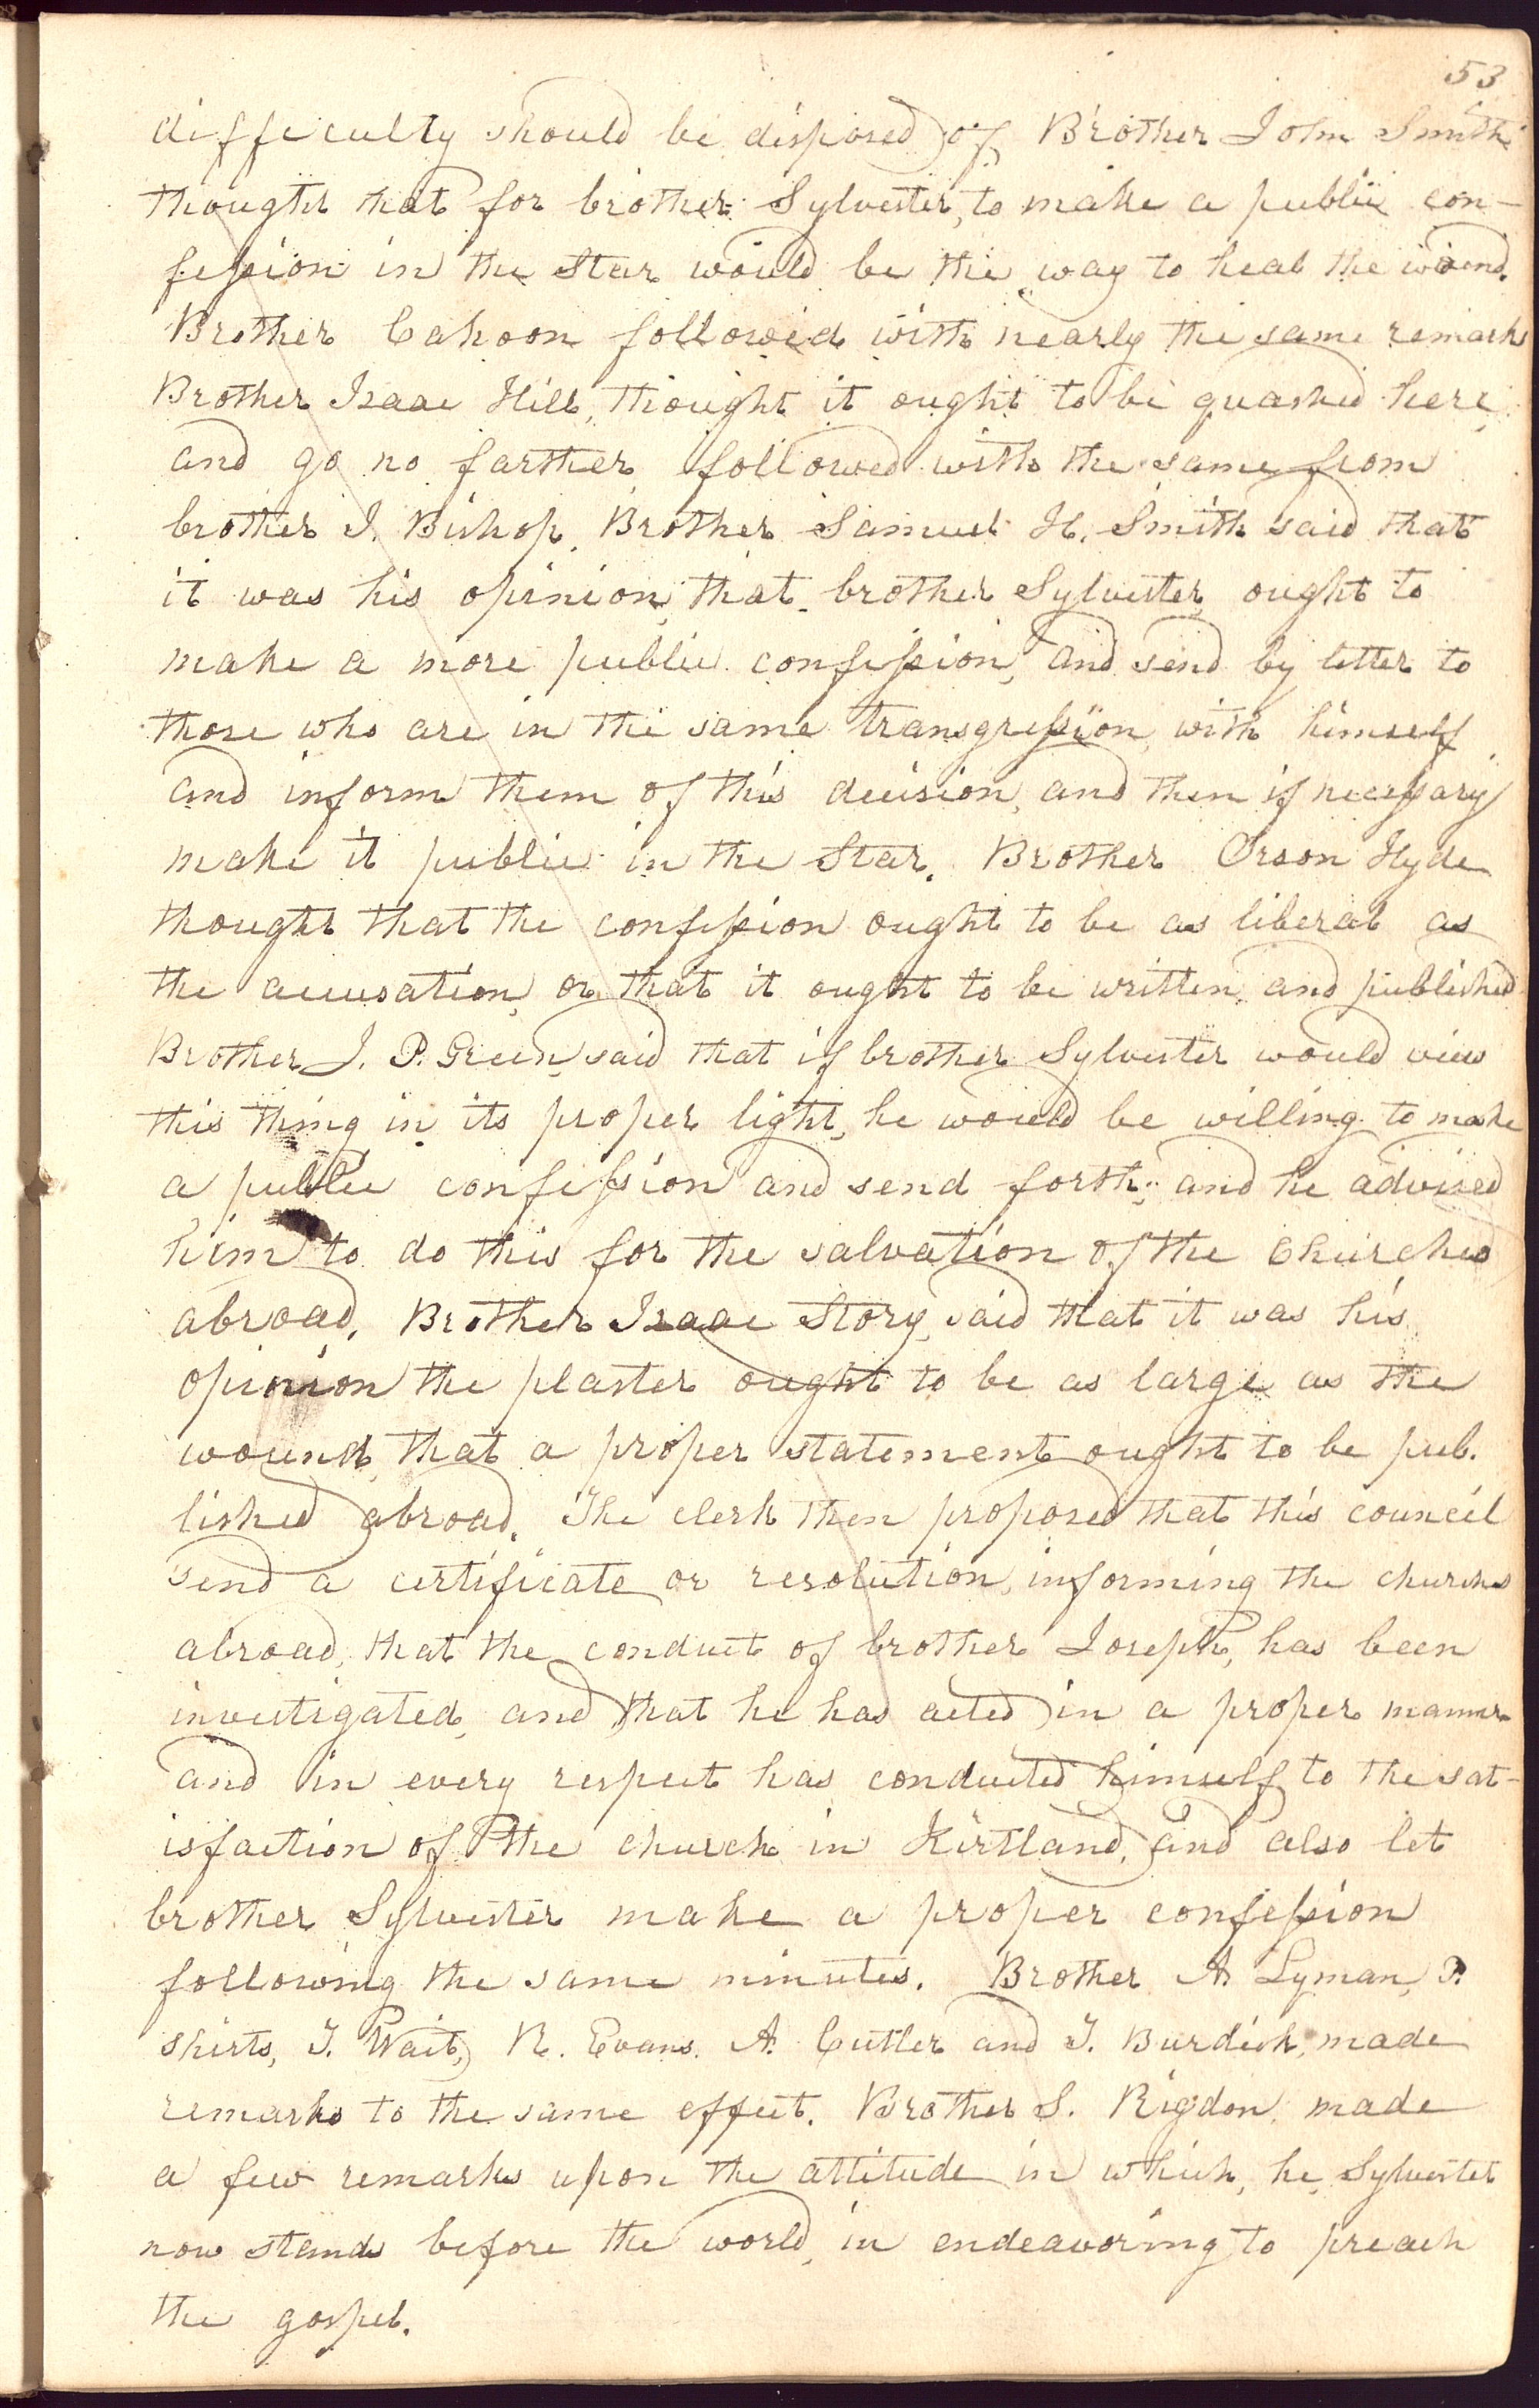 53
difficulty should be disposed of, Brother John Smith
thought that for brother Sylvester, to make a public con-
fession in the Star would be the way to heal the wound.
Brother Cahoon followed with nearly the same remarks
Brother Isaac Hill, thought it ought to be quashed here,
and go no farther, followed with the same from
brother J. Bishop. Brother Samuel H. Smith said that
it was his opinion, that brother Sylvester ought to
make a more public confession, and send by letter to
those who are in the same transgression, with himself
and inform them of this decision, and then if necessary
make it public in the Star. Brother Orson Hyde
thought that the confession ought to be as liberal as
the accusation, or that it ought to be written, and published
Brother J. P. Green, said that if brother Sylvester would view
this thing in its proper light, he would be willing to make
a public confession and send forth; and he advised
him to do this for the salvation of the Churches
abroad. Brother Isaac Story, said that it was his
opinion the plaster ought to be as large as the
wound, that a proper statement ought to be pub.
lished abroad. The clerk then proposed that this council
send a certificate or resolution, informing the churches
abroad, that the conduct of brother Joseph, has been
investigated, and that he has acted in a proper manner
and in every respect has conducted himself to the sat-
isfaction of the church in Kirtland, and also let
brother Sylvester make a proper confession
following the same minutes. Brother A. Lyman, P.
Shirts, T. Wait, R. Evans. A. Cutler and T. Burdick, made
remarks to the same effect. Brother S. Rigdon, made
a few remarks upon the attitude in which, he, Sylvester
now stands before the world, in endeavoring to preach
the gospel.